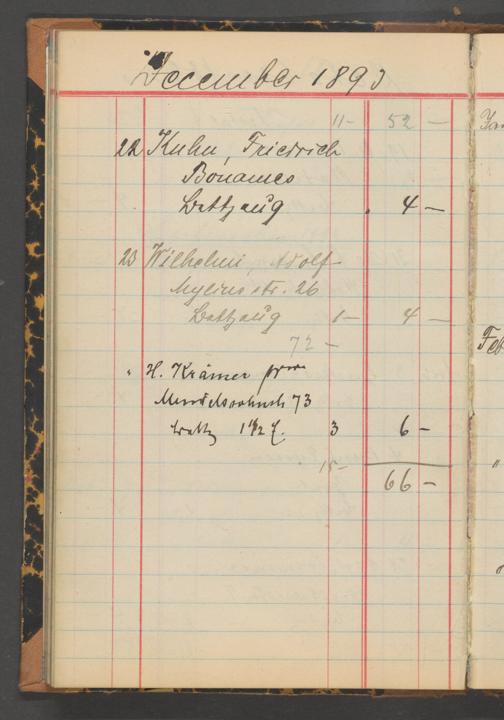 December 1893
11- 52 -
22 Kuhn, Friedrich
Bonames
4 -
23 Wilhelmi, Adolf
Myliusstr. 26
1- 4 -
72 -
" H. Krämer
Mendelssohnstr 73
1 1/2 3 6 -
15-
66 -
Feb
"